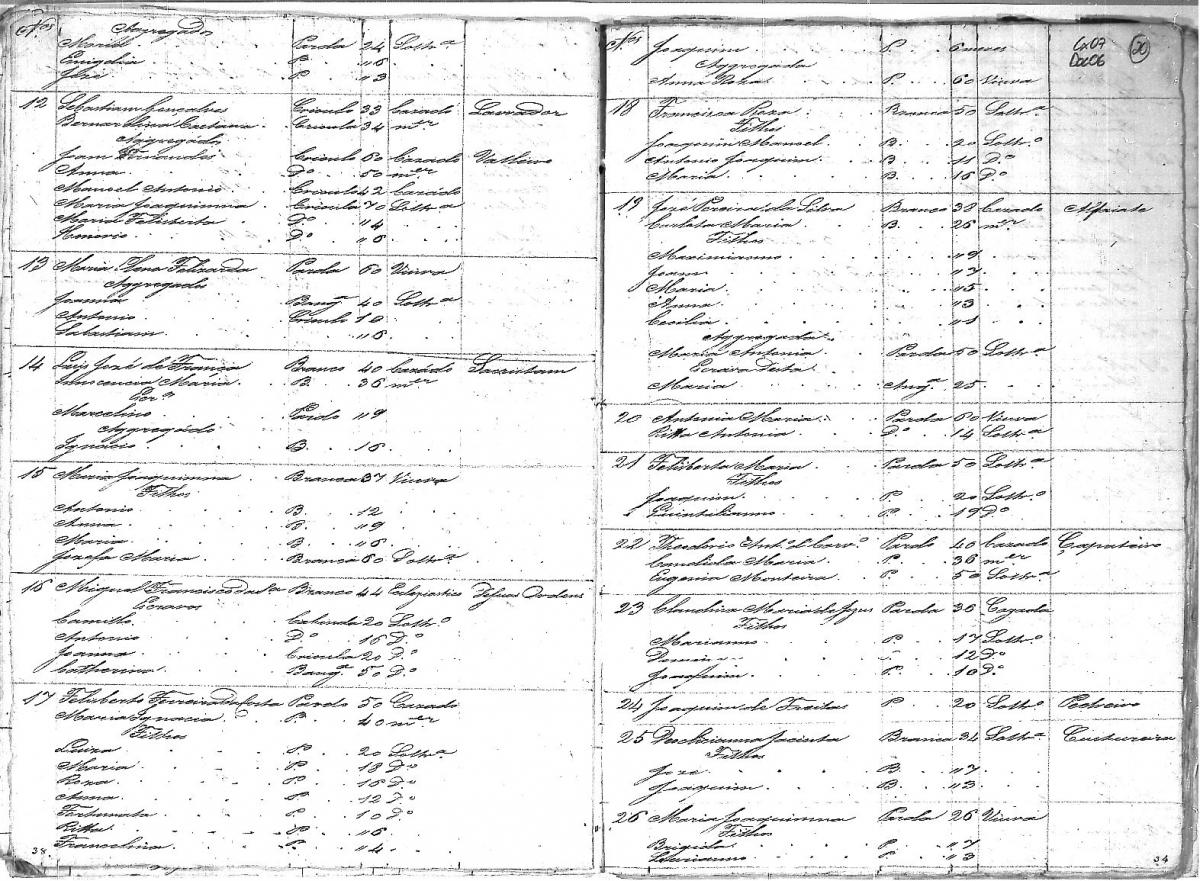 Nos Aggregados
Maria Parda 24 Soltr.a
Emigdia P. 6
José P. 3
12 Sebastiam Gonçalves Crioulo 33 Cazado Lavrador
Bernardina Caetana Crioula 34 m.er
Aggregados
Joam Fernandes Crioulo 60 Cazado
Anna D.o 50 m.er
Manoel Antonio Crioulo 42 Cazado
Maria Joaquinna Crioula 70 Soltr.a
Maria Feliberta D.o 4
D.o 6
13 Maria Parda 60 Viuva
Aggregados
Joanna Bang.a 40 Soltr.a
Antonio Crioulo 10
Sebastiam 6
14 Luis José de França Branco 40 Cazado
Innocencia Maria B. 36 m.er
Marcelino Pardo 9
Aggregado
Ignacio B. 16
15 Maria Joaquinna Branca 37 Viuva
Filhos
Antonio B. 12
Anna B. 9
Maria B. 6
Jozefa Maria Branca 60 Soltr.a
16 Miguel Francisco da S.a Branco 44
Escravos
Camillo Cabinda 20 Soltr.o
Antonio D.o 16 D.o
Joanna Crioula 20 D.o
Catherina Bang.a 50 D.o
17 Feliberto Ferreira da Costa Pardo 50 Cazado
Maria Ignacia P. 40 m.er
Filhos
Luiza P. 20 Soltr.a
Maria P. 18 D.o
Roza P. 16 D.o
Anna P. 12 D.o
Fortunata P. 10 D.o
Ritta P. 6
Francelina P. 4
38
Nos Joaquim P. 6 mezes
Cx07
Doc06
20
Aggregada
Anna Roza P. 60 Viuva
18 Francisca Roza Branca 50 Soltr.a
Filhos
Joaquim Manoel B. 20 Soltr.o
Antonio Joaquim B. 11 D.o
Maria B. 16 D.o
19 José Pereira da Silva Branco 38 Cazado Alfaiate
Carlota Maria B. 26 m.er
Filhos
Maximianno 9
Joam 7
Maria 5
Anna 3
Cecilia 1
Aggregada
Maria Antonia Parda 50 Soltr.a
Escrava desta
Maria Ang.a 25
20 Antonia Maria Parda 60 Viuva
Ritta Antonia D.o 14 Soltr.a
21 Feliberta Maria Parda 50 Soltr.a
Filhos
Joaquim P. 20 Soltr.o
Quintilianno P. 19 D.o
22 Theodorio Ant.o d' Carv.o Pardo 40 Cazado Çapateiro
Candida Maria P. 36 m.er
Eugenia Monteira P. 50 Soltr.a
23 Claudina Maria de Jezus Parda 36 Cazada
Filhos
Marianno P. 17 Soltr.o
12 D.o
Joaquim P. 10 D.o
24 Joaquim de Freitas P. 20 Soltr.o Pedreiro
25 Jacinta Branca 34 Soltr.a Custureira
Filhos
Joze B. 7
Joaquim B. 3
26 Maria Joaquinna Parda 26 Viuva
Filhos
Brigida P. 7
P. 3
34